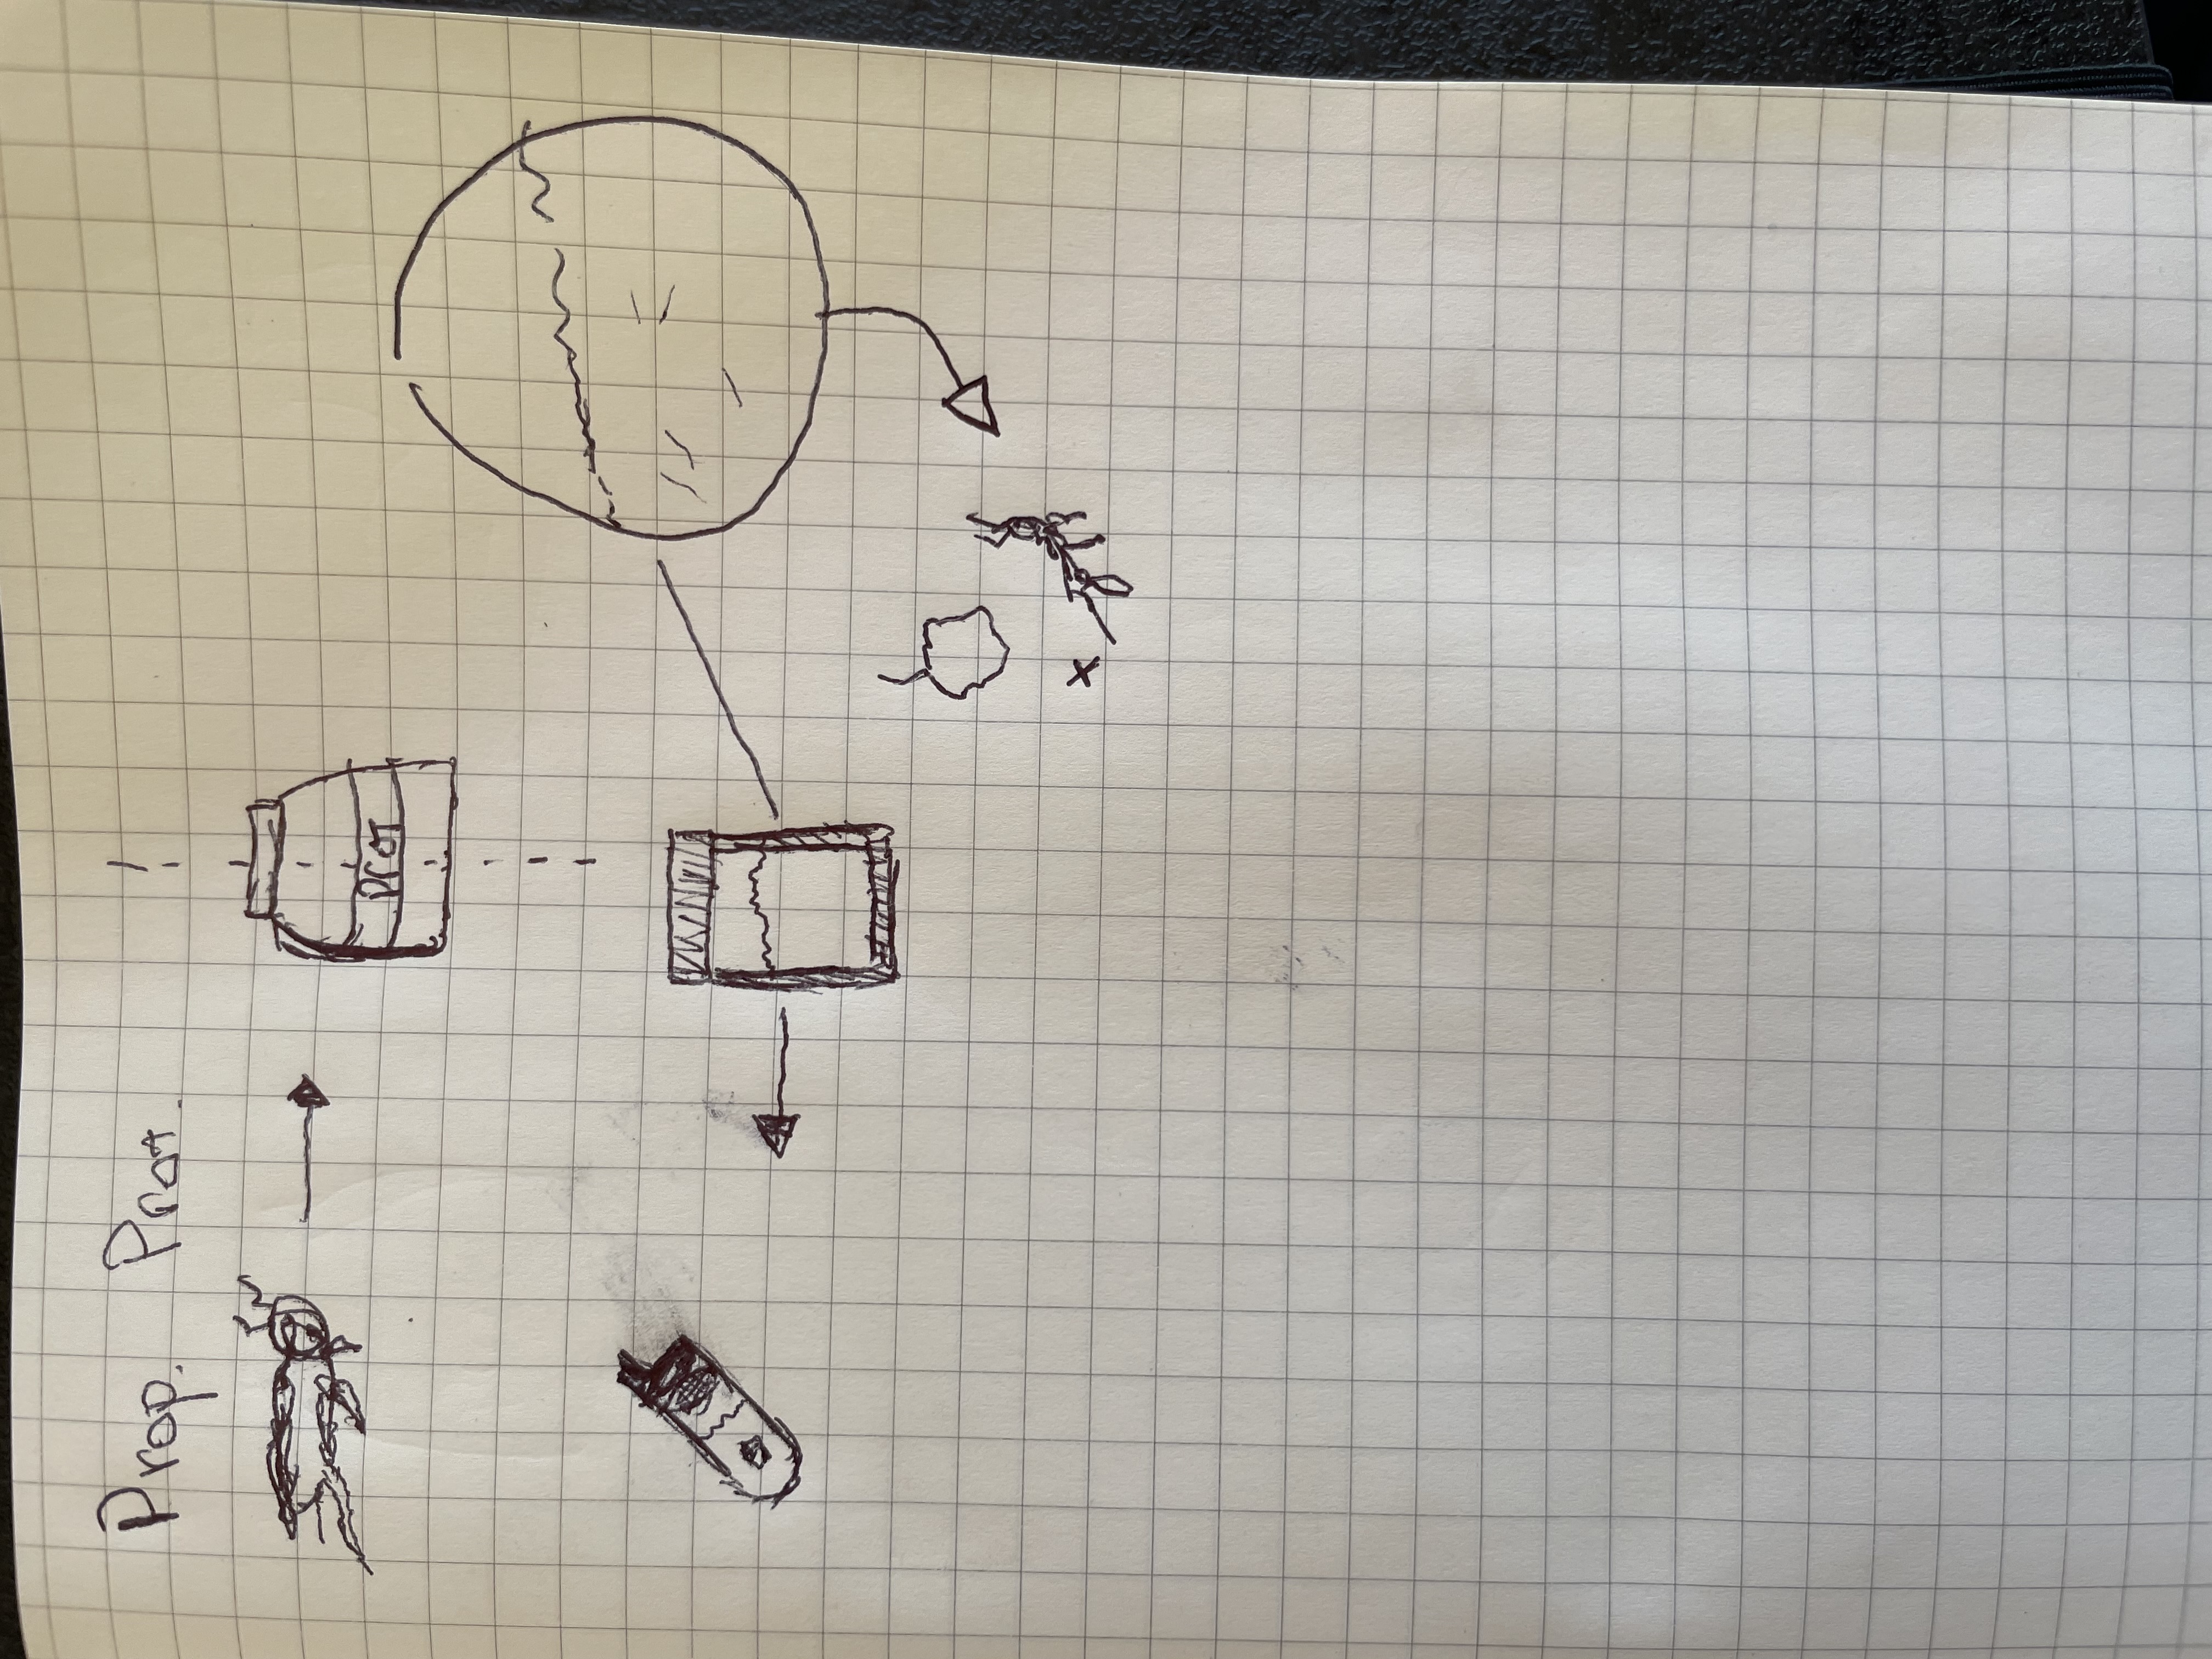 Prop. Prot.
Prot